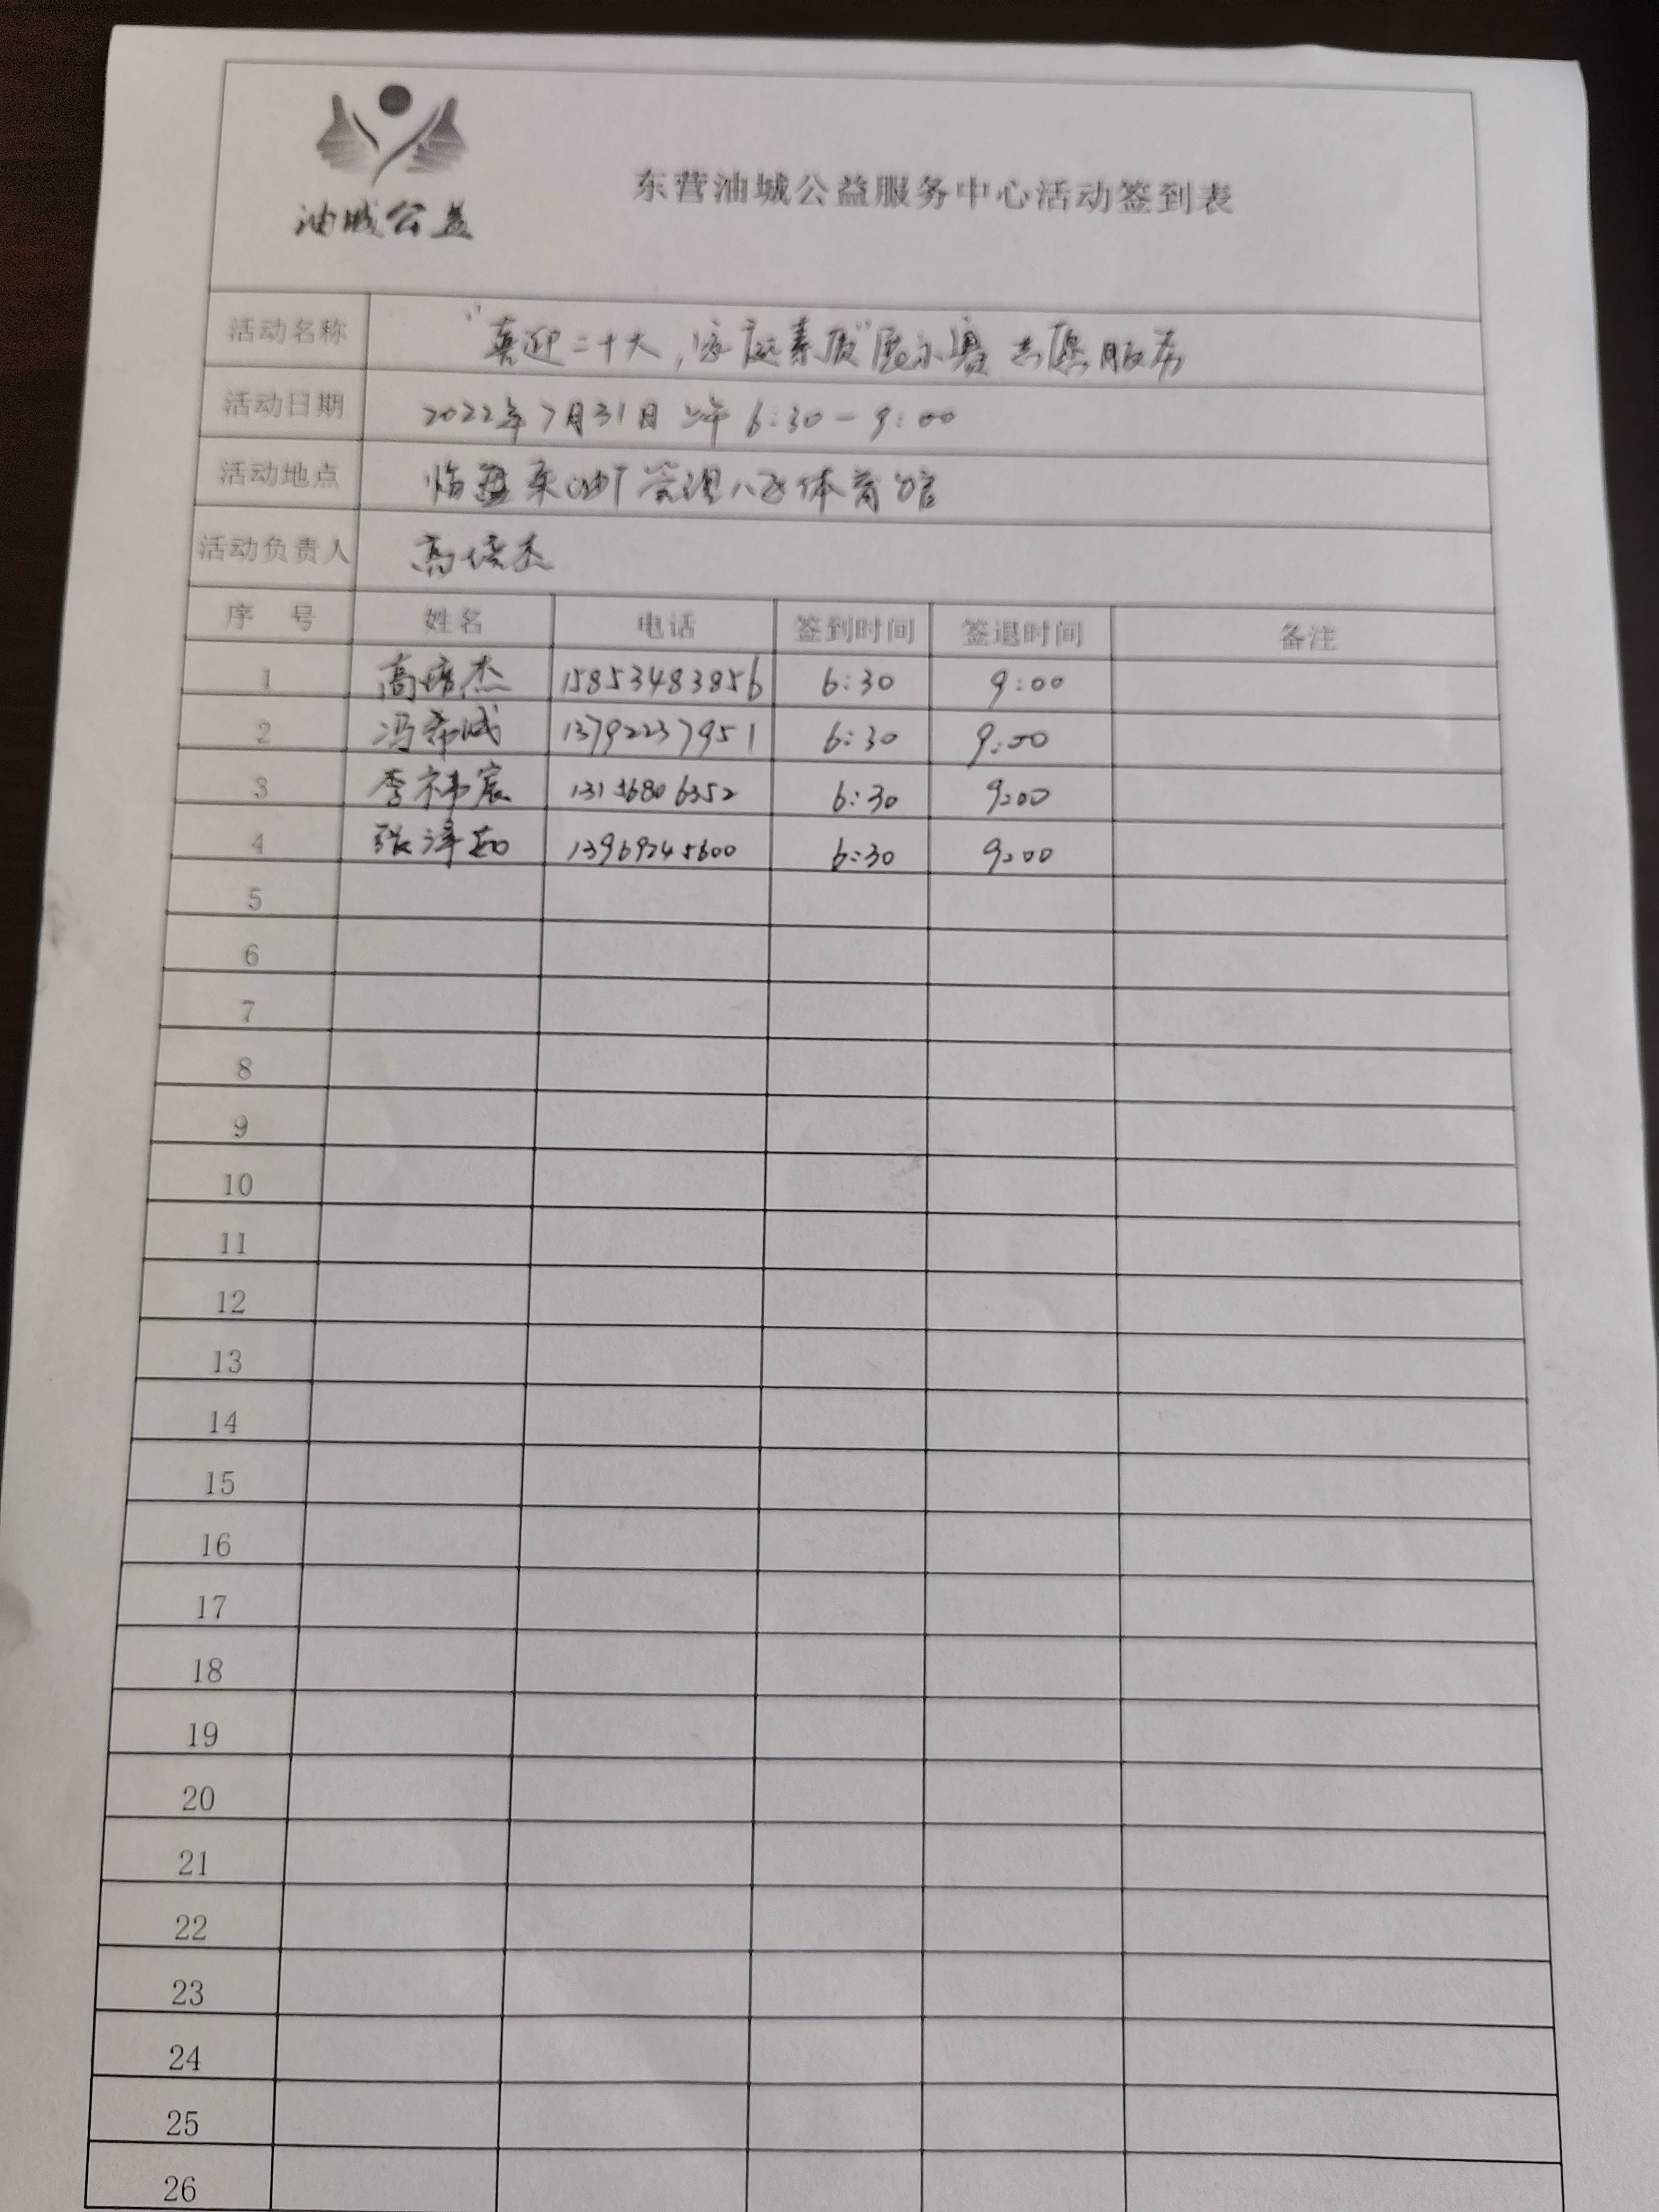 油城公益
东营油城公益服务中心活动签到表
活动名称 "喜迎二十大,家庭素质"展示赛志愿服务
活动日期 2022年7月31日上午 6:30-9:00
活动地点 临盘采油厂管理八区体育馆
活动负责人 高培杰
序 号 姓名 电话 签到时间 签退时间 备注
1 高培杰 15853483856 6:30 9:00
2 冯希诚 13792237951 6:30 9:00
3 李祎宸 13156806352 6:30 9:00
4 张泽茹 13969245600 6:30 9:00
5
6
7
8
9
10
11
12
13
14
15
16
17
18
19
20
21
22
23
24
25
26